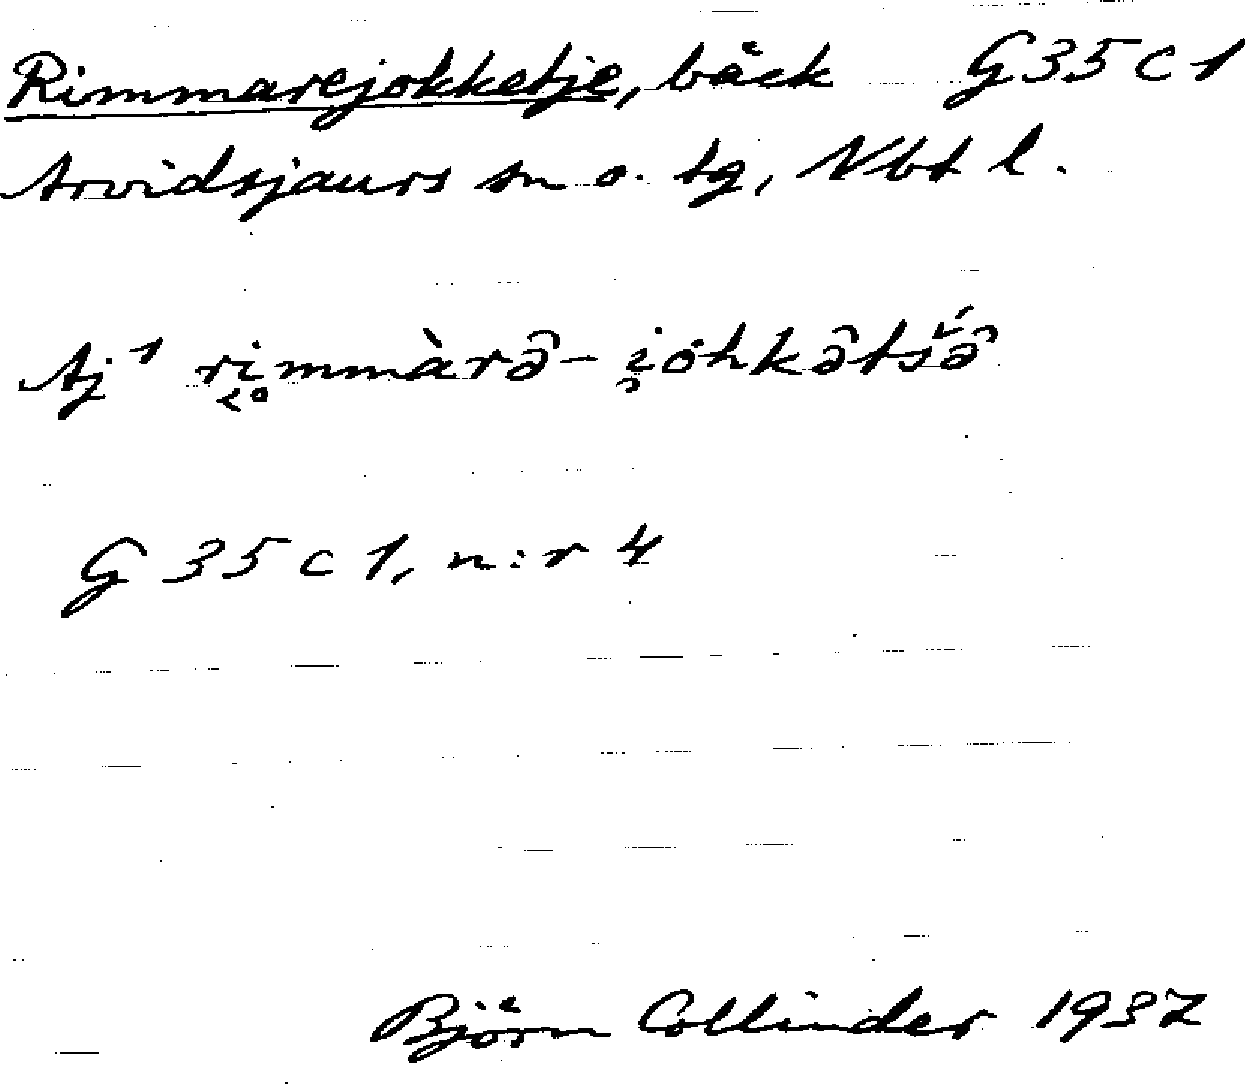 Rimmarejokketje, bäck G35c1
Arvidsjaurs sn o. tg, Nbt l.
Aj¹ ri̥mmàrə̑- i̯ȯhkə̑tš́ə̑
G 35 c 1, n:r 4
Björn Collinder 1937